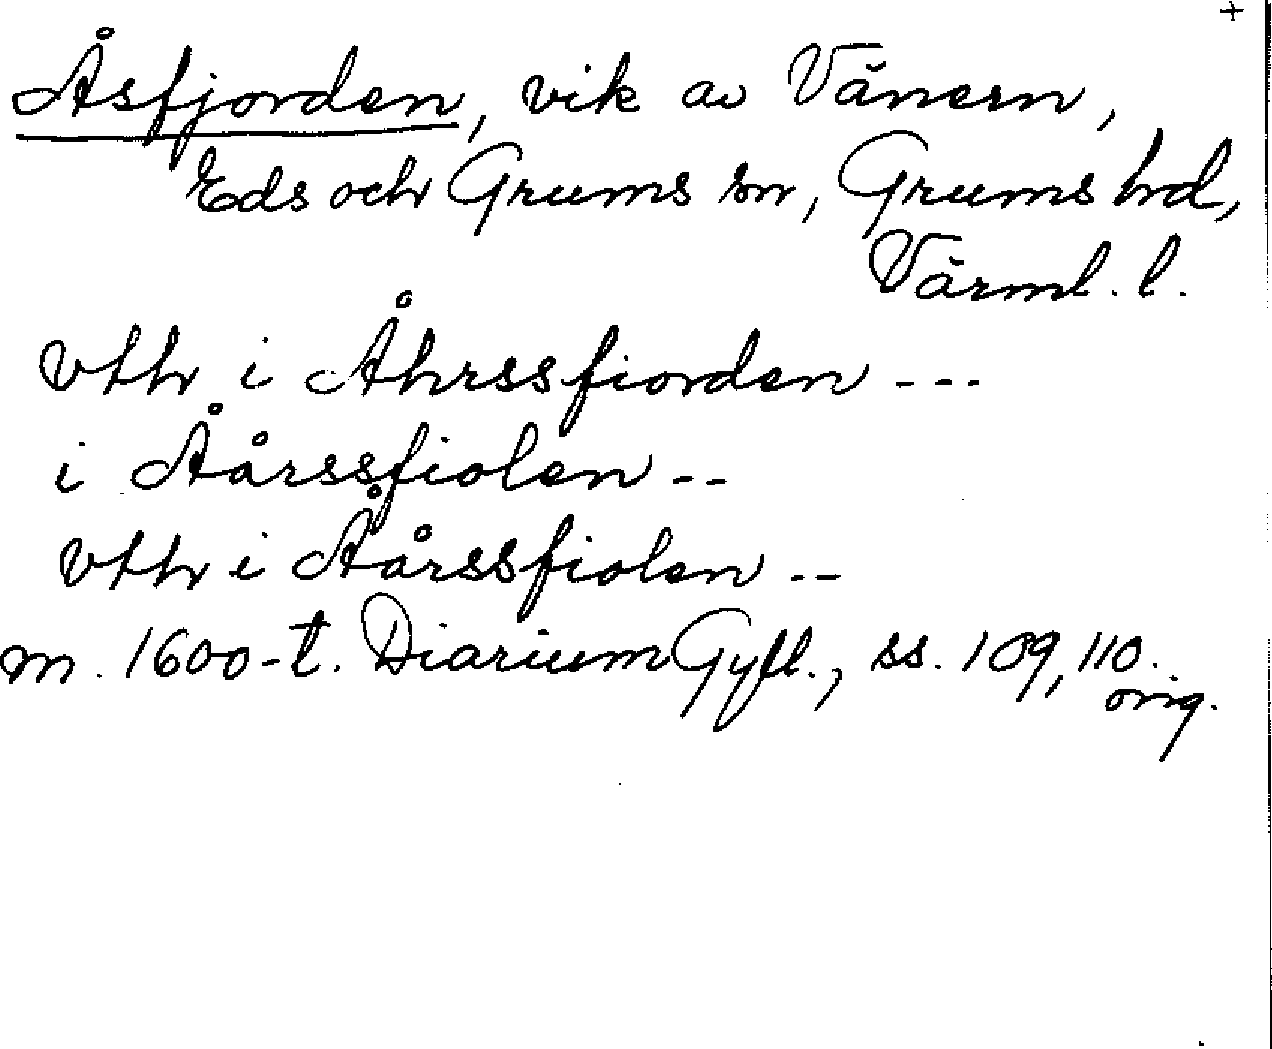 +
Åsfjorden, vik av Vänern,
Eds och Grums snr, Grums hd,
Värml. l.
vthr i Åhrssfiorden ---
i Åårssfiolen --
vthr i Åårssfiolen --
m. 1600-t. Diarium Gyll., ss. 109, 110.
orig.